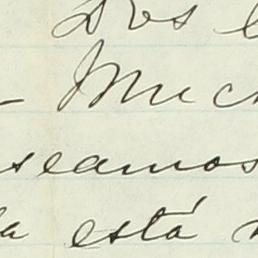 Dos
- Much
seamos
la está